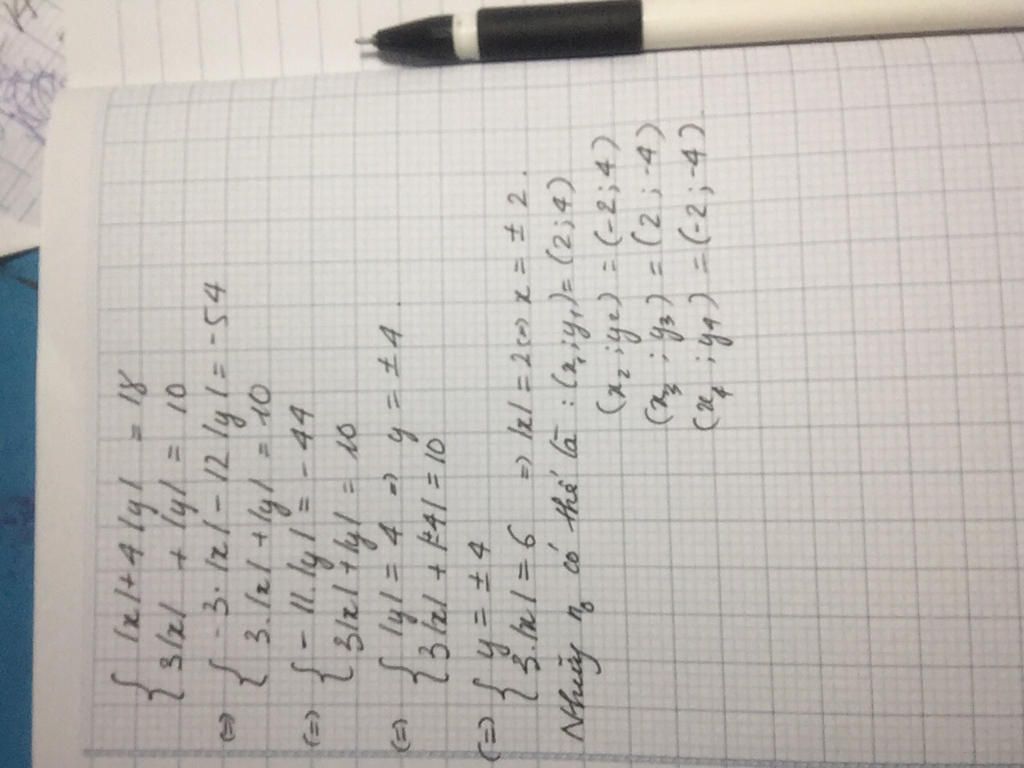 { |x| + 4|y| = 18
3|x| + |y| = 10
⇔ { -3.|x| - 12|y| = -54
3.|x| + |y| = 10
⇔ { -11.|y| = -44
3|x| + |y| = 10
⇔ { |y| = 4 ⇒ y = ±4.
3|x| + |-4| = 10
⇔ { y = ±4
3.|x| = 6 ⇒ |x| = 2 ⇔ x = ±2.
Những n₀ có thể là : (x₁; y₁) = (2; 4)
(x₂; y₂) = (-2; 4)
(x₃; y₃) = (2; -4)
(x₄; y₄) = (-2; -4).